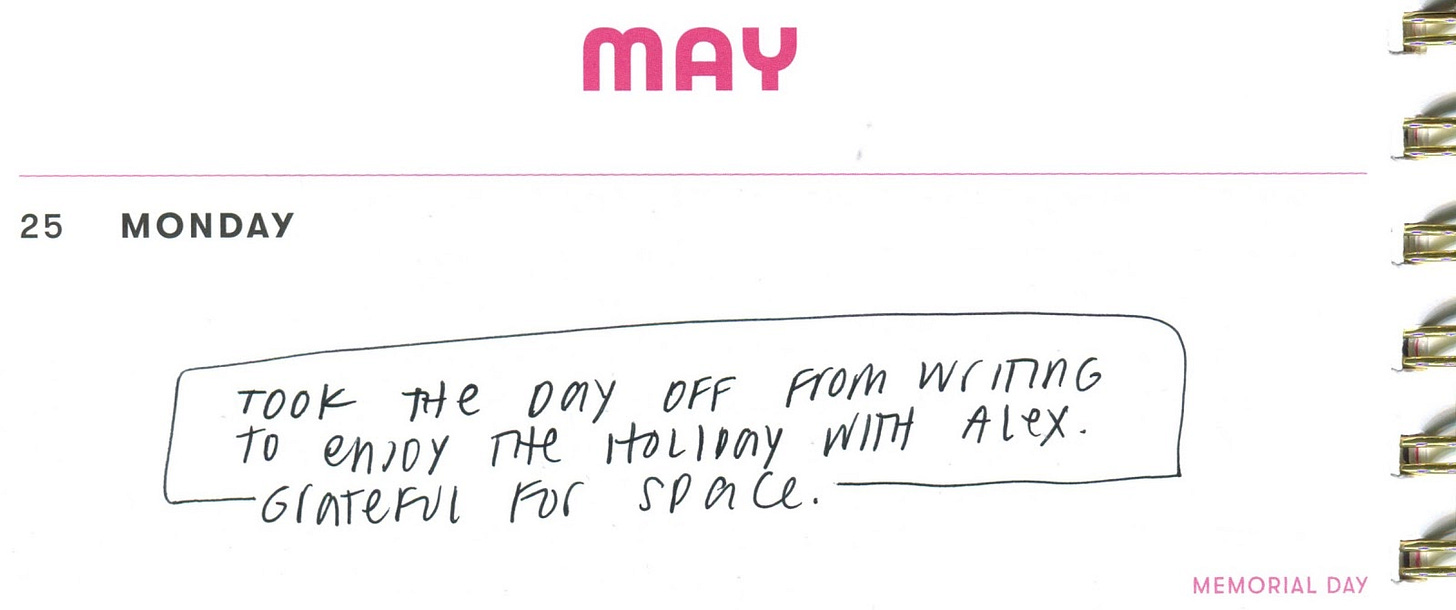 MAY
25 MONDAY
TOOK THE DAY OFF FROM WRITING
TO ENJOY THE HOLIDAY WITH ALEX.
GRATEFUL FOR SPACE.
MEMORIAL DAY